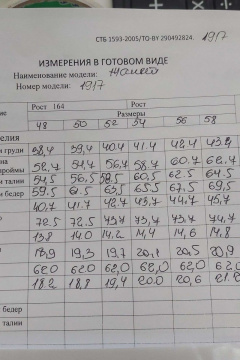 СТБ 1593-2005/ТО-BY 290492824. 19/7
ИЗМЕРЕНИЯ В ГОТОВОМ ВИДЕ
Наименование модели: Жакет
Номер модели: 19/7
Рост 164 Рост
Размеры
48 50 52 54 56 58
елия
и груди 39,4 40,4 41,4 42,4 43,4
на
проймы 52,7 54,7 56,7 58,7 60,7 62,7
и талии 54,5 56,5 58,5 60,5 62,5 64,5
и бедер 59,5 61,5 63,5 65,5 67,5 69,5
40,7 41,7 42,7 43,7 44,7 45,7
72,5 72,5 73,7 73,7 73,7 74,7
13,8 14,0 14,2 14,4 14,6 14,8
18,9 19,3 19,7 20,1 20,5 20,9
62,0 62,0 62,0 62,0 62,0 62,0
18,2 18,8 19,4 20,0 20,6
и бедер
и талии